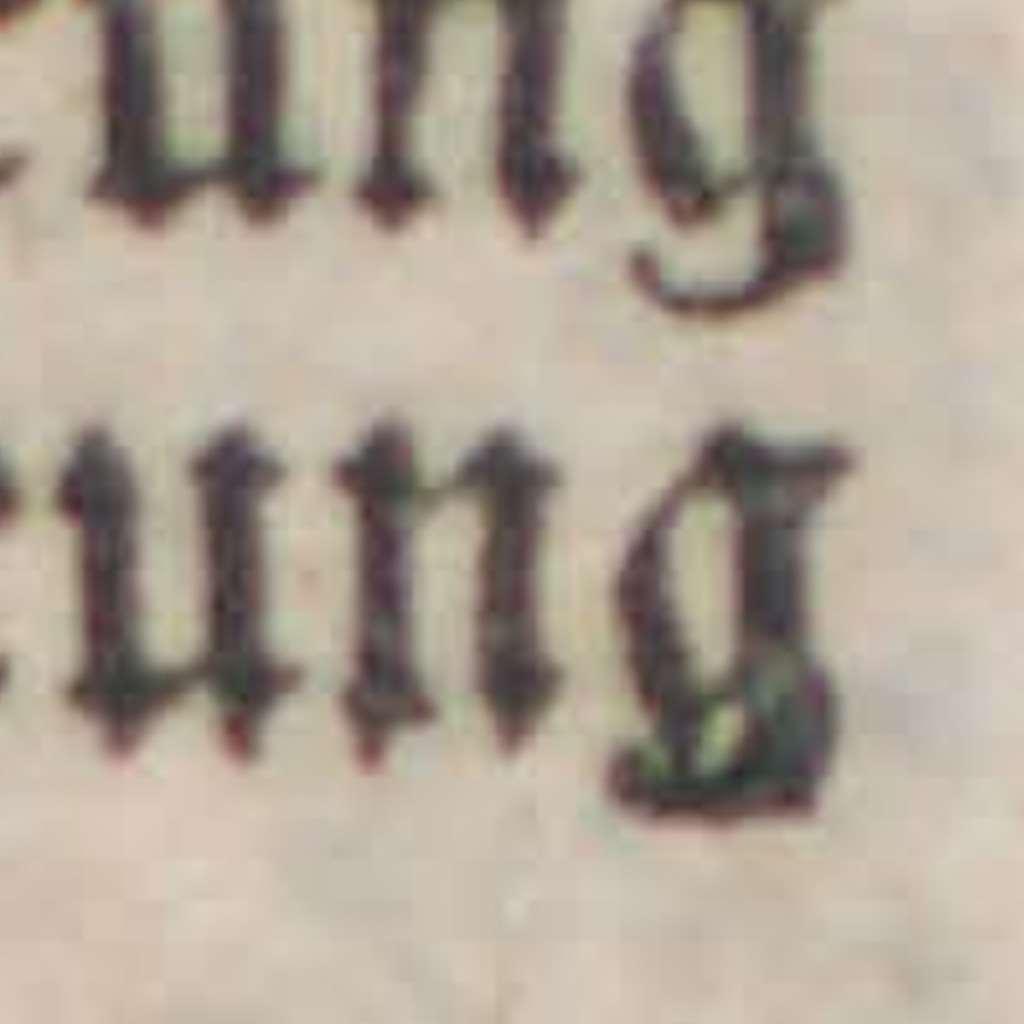 ung
ung